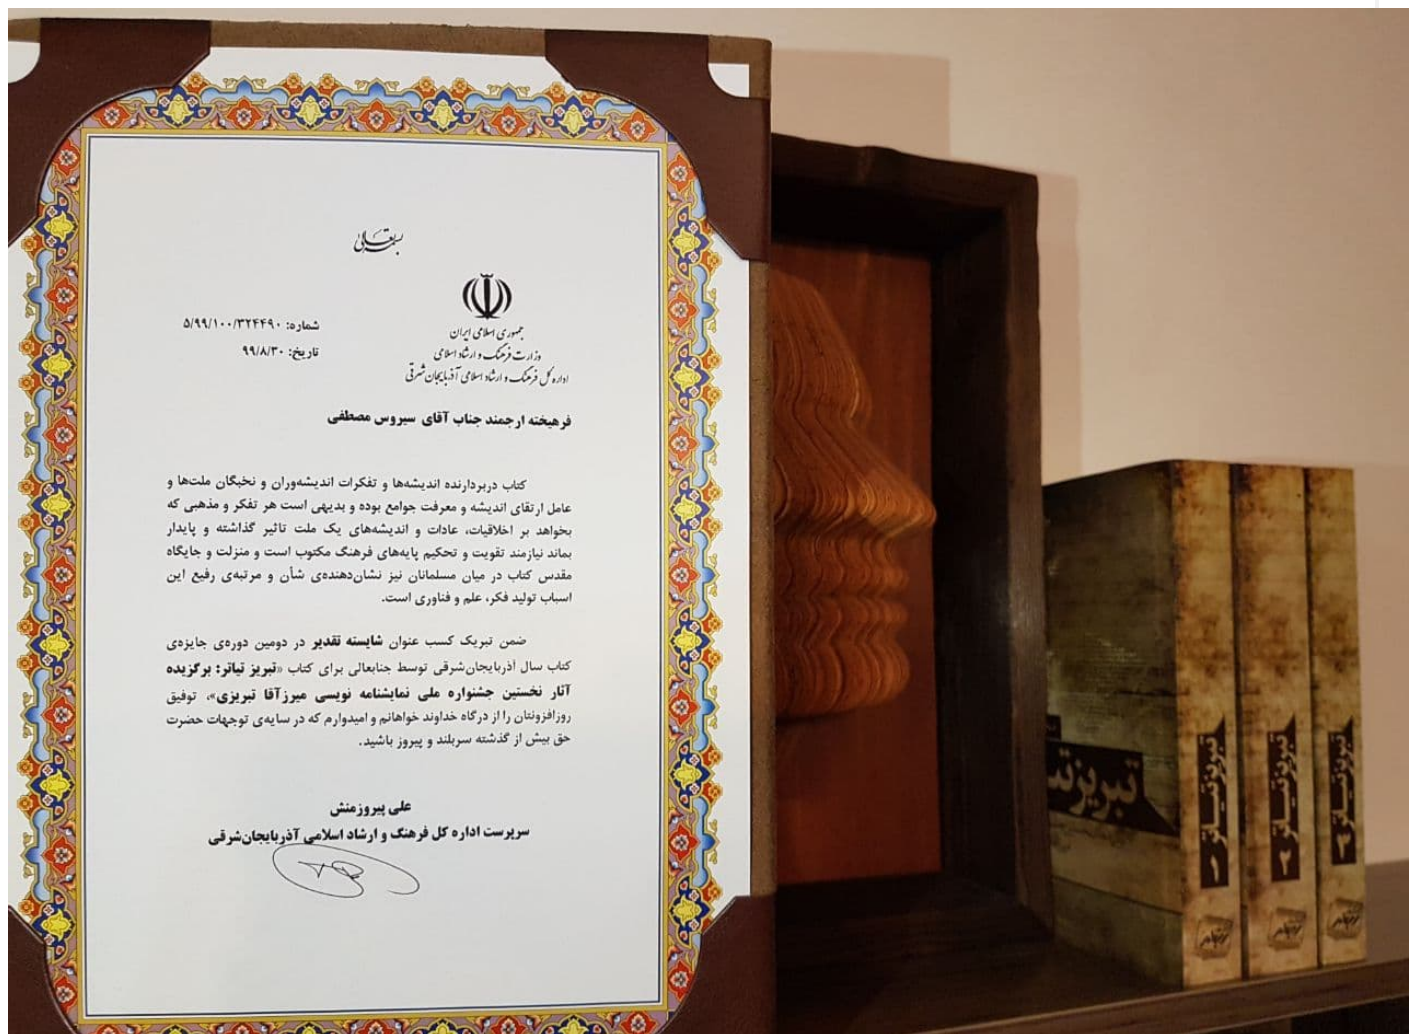 بسمه‌تعالی
جمهوری اسلامی ایران
وزارت فرهنگ و ارشاد اسلامی
اداره کل فرهنگ و ارشاد اسلامی آذربایجان شرقی
شماره: ۵/۹۹/۱۰۰/۳۲۴۴۹۰
تاریخ: ۹۹/۸/۳۰
فرهیخته ارجمند جناب آقای سیروس مصطفی
کتاب دربردارنده اندیشه‌ها و تفکرات اندیشه‌وران و نخبگان ملت‌ها و
عامل ارتقای اندیشه و معرفت جوامع بوده و بدیهی است هر تفکر و مذهبی که
بخواهد بر اخلاقیات، عادات و اندیشه‌های یک ملت تاثیر گذاشته و پایدار
بماند نیازمند تقویت و تحکیم پایه‌های فرهنگ مکتوب است و منزلت و جایگاه
مقدس کتاب در میان مسلمانان نیز نشان‌دهنده‌ی شأن و مرتبه‌ی رفیع این
اسباب تولید فکر، علم و فناوری است.
ضمن تبریک کسب عنوان شایسته تقدیر در دومین دوره‌ی جایزه‌ی
کتاب سال آذربایجان‌شرقی توسط جنابعالی برای کتاب «تبریز تیاتر: برگزیده
آثار نخستین جشنواره ملی نمایشنامه نویسی میرزآقا تبریزی»، توفیق
روزافزونتان را از درگاه خداوند خواهانم و امیدوارم که در سایه‌ی توجهات حضرت
حق بیش از گذشته سربلند و پیروز باشید.
علی پیروزمنش
سرپرست اداره کل فرهنگ و ارشاد اسلامی آذربایجان‌شرقی
تبریزتیـ
تبریزتیاتر ۱
تبریزتیاتر ۲
تبریزتیاتر ۳